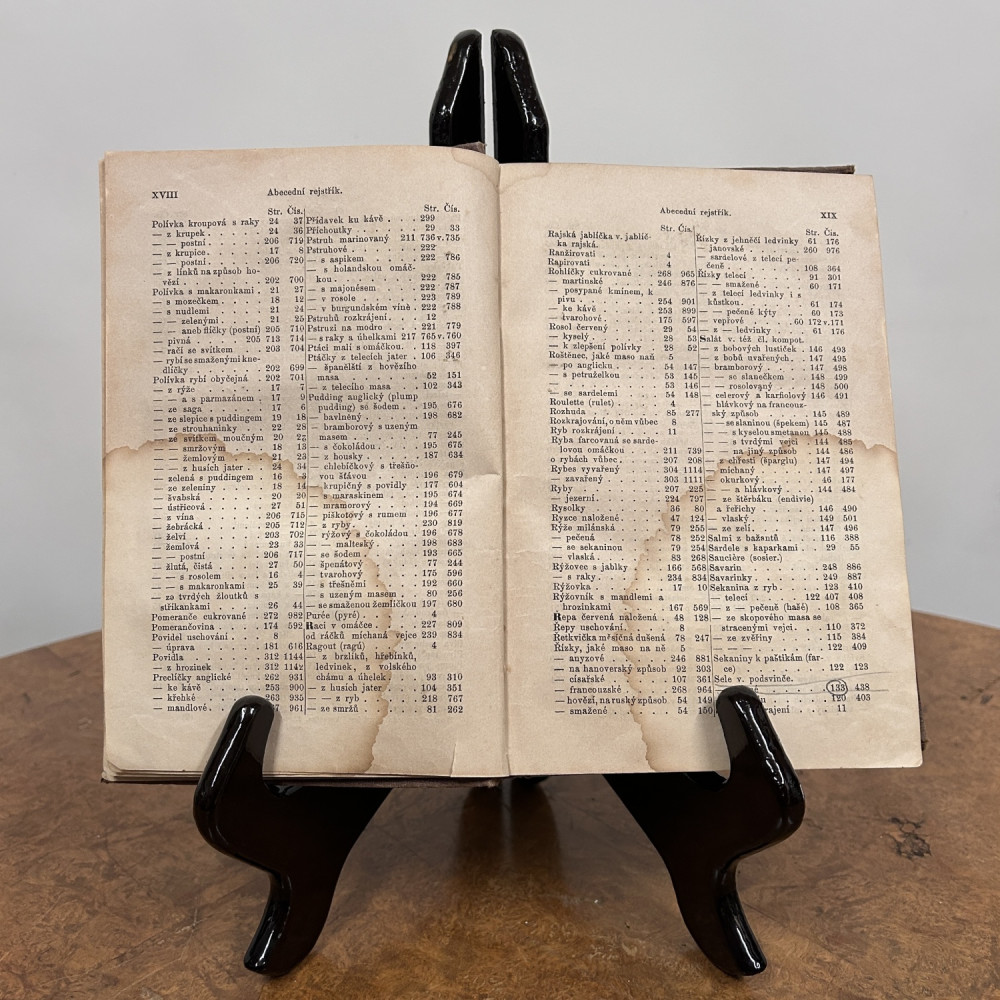 XVIII
Abecední rejstřík.
Str. Čís.
Polívka kroupová s raky 24 37
— z krupek 24 36
— — postní 206 719
— z krupice 17 8
— — postní 206 720
— z línků na způsob ho-
vězí 202 700
Polívka s makaronkami 21 27
— s mozečkem 18 12
— s nudlemi 21 24
— — zelenými 21 25
— — aneb flíčky (postní) 205 710
— pivná 205 713 714
— račí se svítkem 203 704
— rybí se smaženými kne-
dlíčky 202 699
Polívka rybí obyčejná 202 701
— z rýže 17 7
— — a s parmazánem 17 9
— ze saga 17 6
— ze slepice s puddingem 19 18
— ze strouhaninky 22 28
— ze svítkem moučným 20
— — smržovým 18 13
— — žemlovým 21 23
— z husích jater 24 34
— zelená s puddingem 16 3
— ze zeleniny 18 14
— švabská 20 20
— ústřicová 27 51
— z vína 206 715
— žebrácká 205 712
— želví 203 702
— žemlová 23 33
— — postní 206 717
— žlutá, čistá 27 50
— — s rosolem 16 4
— — s makaronkami 25 39
— ze tvrdých žloutků s
stříkankami 26 44
Pomeranče cukrované 272 982
Pomerančovina 174 592
Povidel uschování 8
— úprava 181 616
Povidla 312 1144
— z hrozinek 312 1142
Preclíčky anglické 262 931
— ke kávě 253 900
— křehké 263 935
— mandlové 961
Str. Čís.
Přídavek ku kávě 299
Příchoutky 29 33
Pstruh marinovaný 211 736 v. 735
Pstruhové 222
— s aspikem 222 786
— s holandskou omáč-
kou 222 785
— s majonésem 222 787
— v rosole 223 789
— v burgundském víně 222 788
Pstruhů rozkrájení 12
Pstruzi na modro 221 779
— s raky a úhelkami 217 765 v. 760
Ptáci malí s omáčkou 118 397
Ptáčky z telecích jater 106 346
— španělští z hovězího
masa 52 151
— z telecího masa 102 343
Pudding anglický (plump
pudding) se šodem 195 676
— bavlněný 198 682
— bramborový s uzeným
masem 77 245
— s čokoládou 195 675
— z housky 187 634
— chlebíčkový s třešňo-
vou šťávou 196 679
— krupičný s povidly 177 604
— s maraskinem 195 674
— mramorový 194 669
— piškotový s rumem 196 677
— z ryby 230 819
— rýžový s čokoládou 196 678
— — malteský 198 683
— se šodem 193 665
— špenátový 77 244
— tvarohový 175 596
— s třešněmi 192 660
— s uzeným masem 80 256
— se smaženou žemličkou 197 680
Purée (pyré) 4
Raci v omáčce 227 809
od ráčků míchaná vejce 239 834
Ragout (ragů) 4
— z brzlíků, hřebínků,
ledvinek, z volského
chámu a úhelek 93 310
— z husích jater 104 351
— — z ryb 218 767
— ze smržů 81 262
Abecední rejstřík.
XIX
Str. Čís.
Rajská jablíčka v. jablíč-
ka rajská.
Ranžírovati 4
Rapirovati 4
Rohlíčky cukrované 268 965
— martinské 246 876
— posypané kmínem, k
pivu 254 901
— ke kávě 253 899
— tvarohové 175 597
Rosol červený 29 54
— kyselý 28 53
— k zlepšení polívky 28 52
Roštěnec, jaké maso naň 5
— po anglicku 54 147
— s petruželkou 53 145
— 53 146
— se sardelemi 54 148
Roulette (rulet) 4
Rozhuda 85 277
Rozkrajování, o něm vůbec 8
Ryb rozkrájení 11
Ryba farcovaná se sarde-
lovou omáčkou 211 739
o rybách vůbec 207 208
Rybes vyvařený 304 1114
— zavařený 303 1111
Ryby 207 225
— jezerní 224 797
Rysolky 36 80
Ryzce naložené 47 124
Rýže milánská 79 255
— pečená 78 252
— se sekaninou 79 254
— vlaská 83 268
Rýžovec s jablky 166 568
— s raky 234 834
Rýžovka 17 10
Rýžovník s mandlemi a
hrozinkami 167 569
Řepa červená naložená 48 128
Řepy uschování 8
Řetkvička měsíčná dušená 78 247
Řízky, jaké maso na ně 5
— anyzové 246 881
— na hanoverský způsob 92 303
— císařské 107 361
— francouzské 268 964
— hovězí, na ruský způsob 54 149
— smažené 54 150
Str. Čís.
Řízky z jehněčí ledvinky 61 176
— janovské 260 976
— sardelové z telecí pe-
čeně 108 364
Řízky telecí 91 301
— — smažené 60 171
— — z telecí ledvinky i s
kůstkou 61 174
— — pečené kýty 60 173
— vepřové 60 172 v. 171
— — z ledvinky 61 176
Salát v. též čl. kompot.
— z bobových lusticek 146 493
— z bobů uvařených 147 495
— bramborový 147 498
— — se slanečkem 148 499
— — rosolovaný 148 500
— celerový a karfiolový 146 491
— hlávkový na francouz-
ský způsob 145 489
— — se slaninou (špekem) 145 487
— — s kyselou smetanou 145 488
— — s tvrdými vejci 144 485
— — na jiný způsob 144 486
— z chřestí (špargiu) 147 494
— míchaný 147 497
— okurkový 46 177
— — a hlávkový 144 484
— ze štěrbáku (endivie)
a řeřichy 146 490
— vlaský 149 501
— ze zelí 147 496
Salmi z bažantů 116 388
Sardele s kaparkami 29 55
Saucière (sosier.)
Savarin 248 886
Savarinky 249 887
Sekanina z ryb 123 410
— telecí 122 407 408
— z — pečeně (hašé) 108 365
— ze skopového masa se
stracenými vejci 110 372
— ze zvěřiny 115 384
— — 122 409
Sekaniny k paštikám (far-
ce) 122 123
Sele v. podsvinče.
133 438
120 403
11